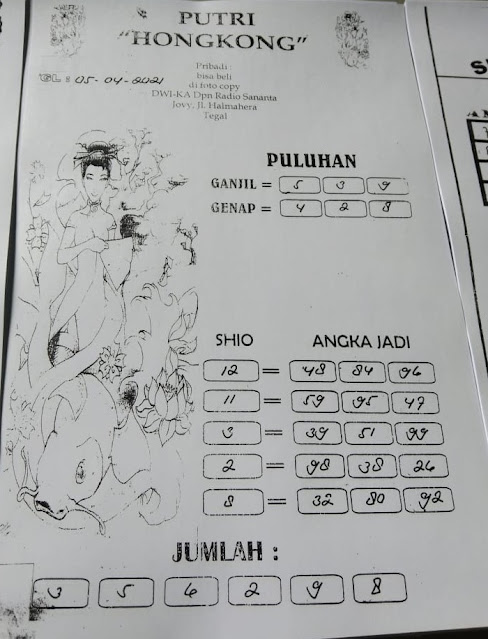 PUTRI
"HONGKONG"
Pribadi :
bisa beli
di foto copy
DWI-KA Dpn Radio Sananta
Jovy, Jl. Halmahera
Tegal
GL : 05-04-2021
PULUHAN
GANJIL = 5 3 9
GENAP = 4 2 8
SHIO ANGKA JADI
12 = 48 84 96
11 = 59 95 47
3 = 39 51 99
2 = 98 38 26
8 = 32 80 92
JUMLAH :
3 5 6 2 9 8